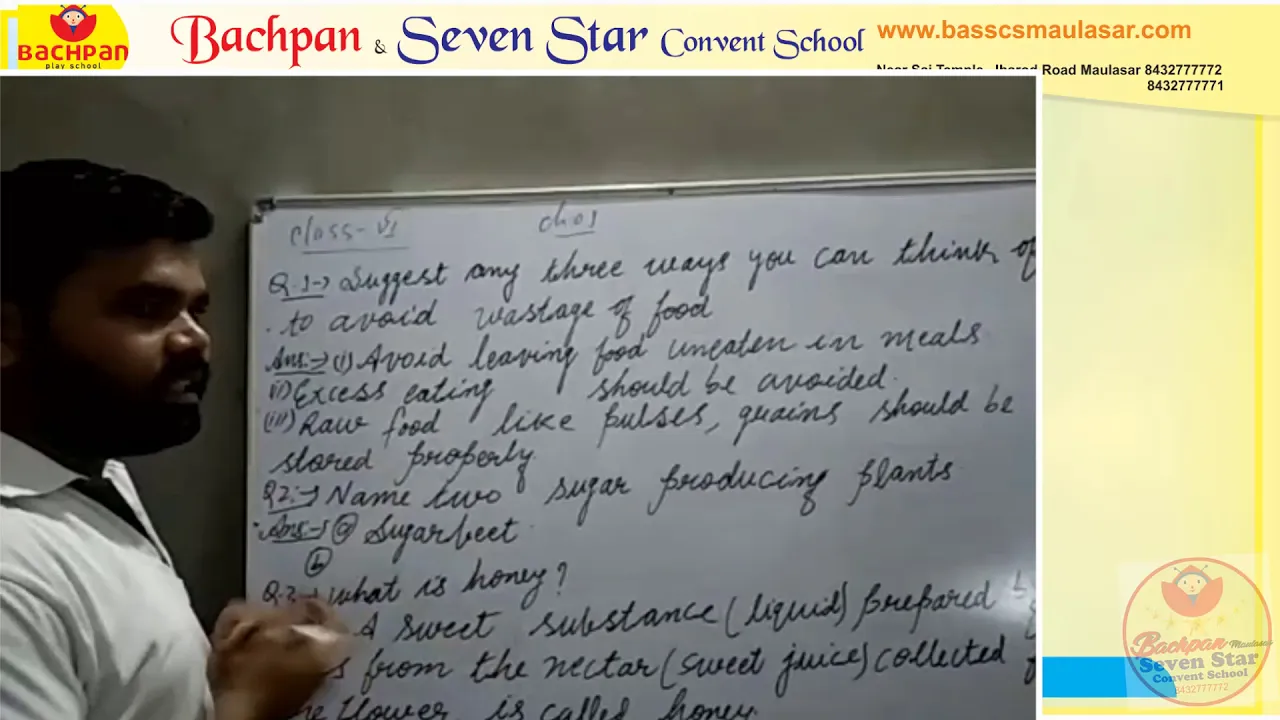 BACHPAN
play school
Bachpan & Seven Star Convent School
www.basscsmaulasar.com
Road Maulasar 8432777772
8432777771
class-VI ch.01
Q.1-> Suggest any three ways you can think of
to avoid wastage of food
Ans:-> (i) Avoid leaving food uneaten in meals
ii) Excess eating should be avoided.
(iii) Raw food like pulses, grains should be
stored properly.
Q2:-> Name two sugar producing plants
Ans:-> (a) Sugarbeet
(b)
What is honey?
A sweet substance (liquid) prepared
from the nectar (sweet juice) collected
flower is called honey.
Bachpan Maulasar
Seven Star
Convent School
8432777772